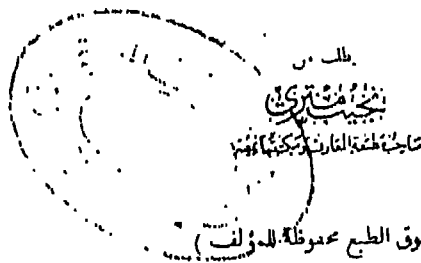 يطلب من
نجيب متري
صاحب مطبعة المعارف ومكتبتها بمصر
وق الطبع محفوظة للمؤلف )